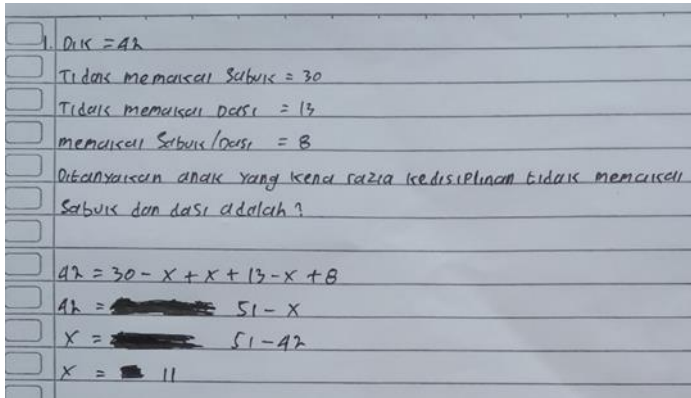 1. Dik = 42
Tidak memakai Sabuk = 30
Tidak memakai Dasi = 13
memakai Sabuk/Dasi = 8
Ditanyakan anak yang kena razia kedisiplinan tidak memakai
Sabuk dan dasi adalah?
42 = 30 - x + x + 13 - x + 8
42 = 51 - x
x = 51 - 42
x = 11